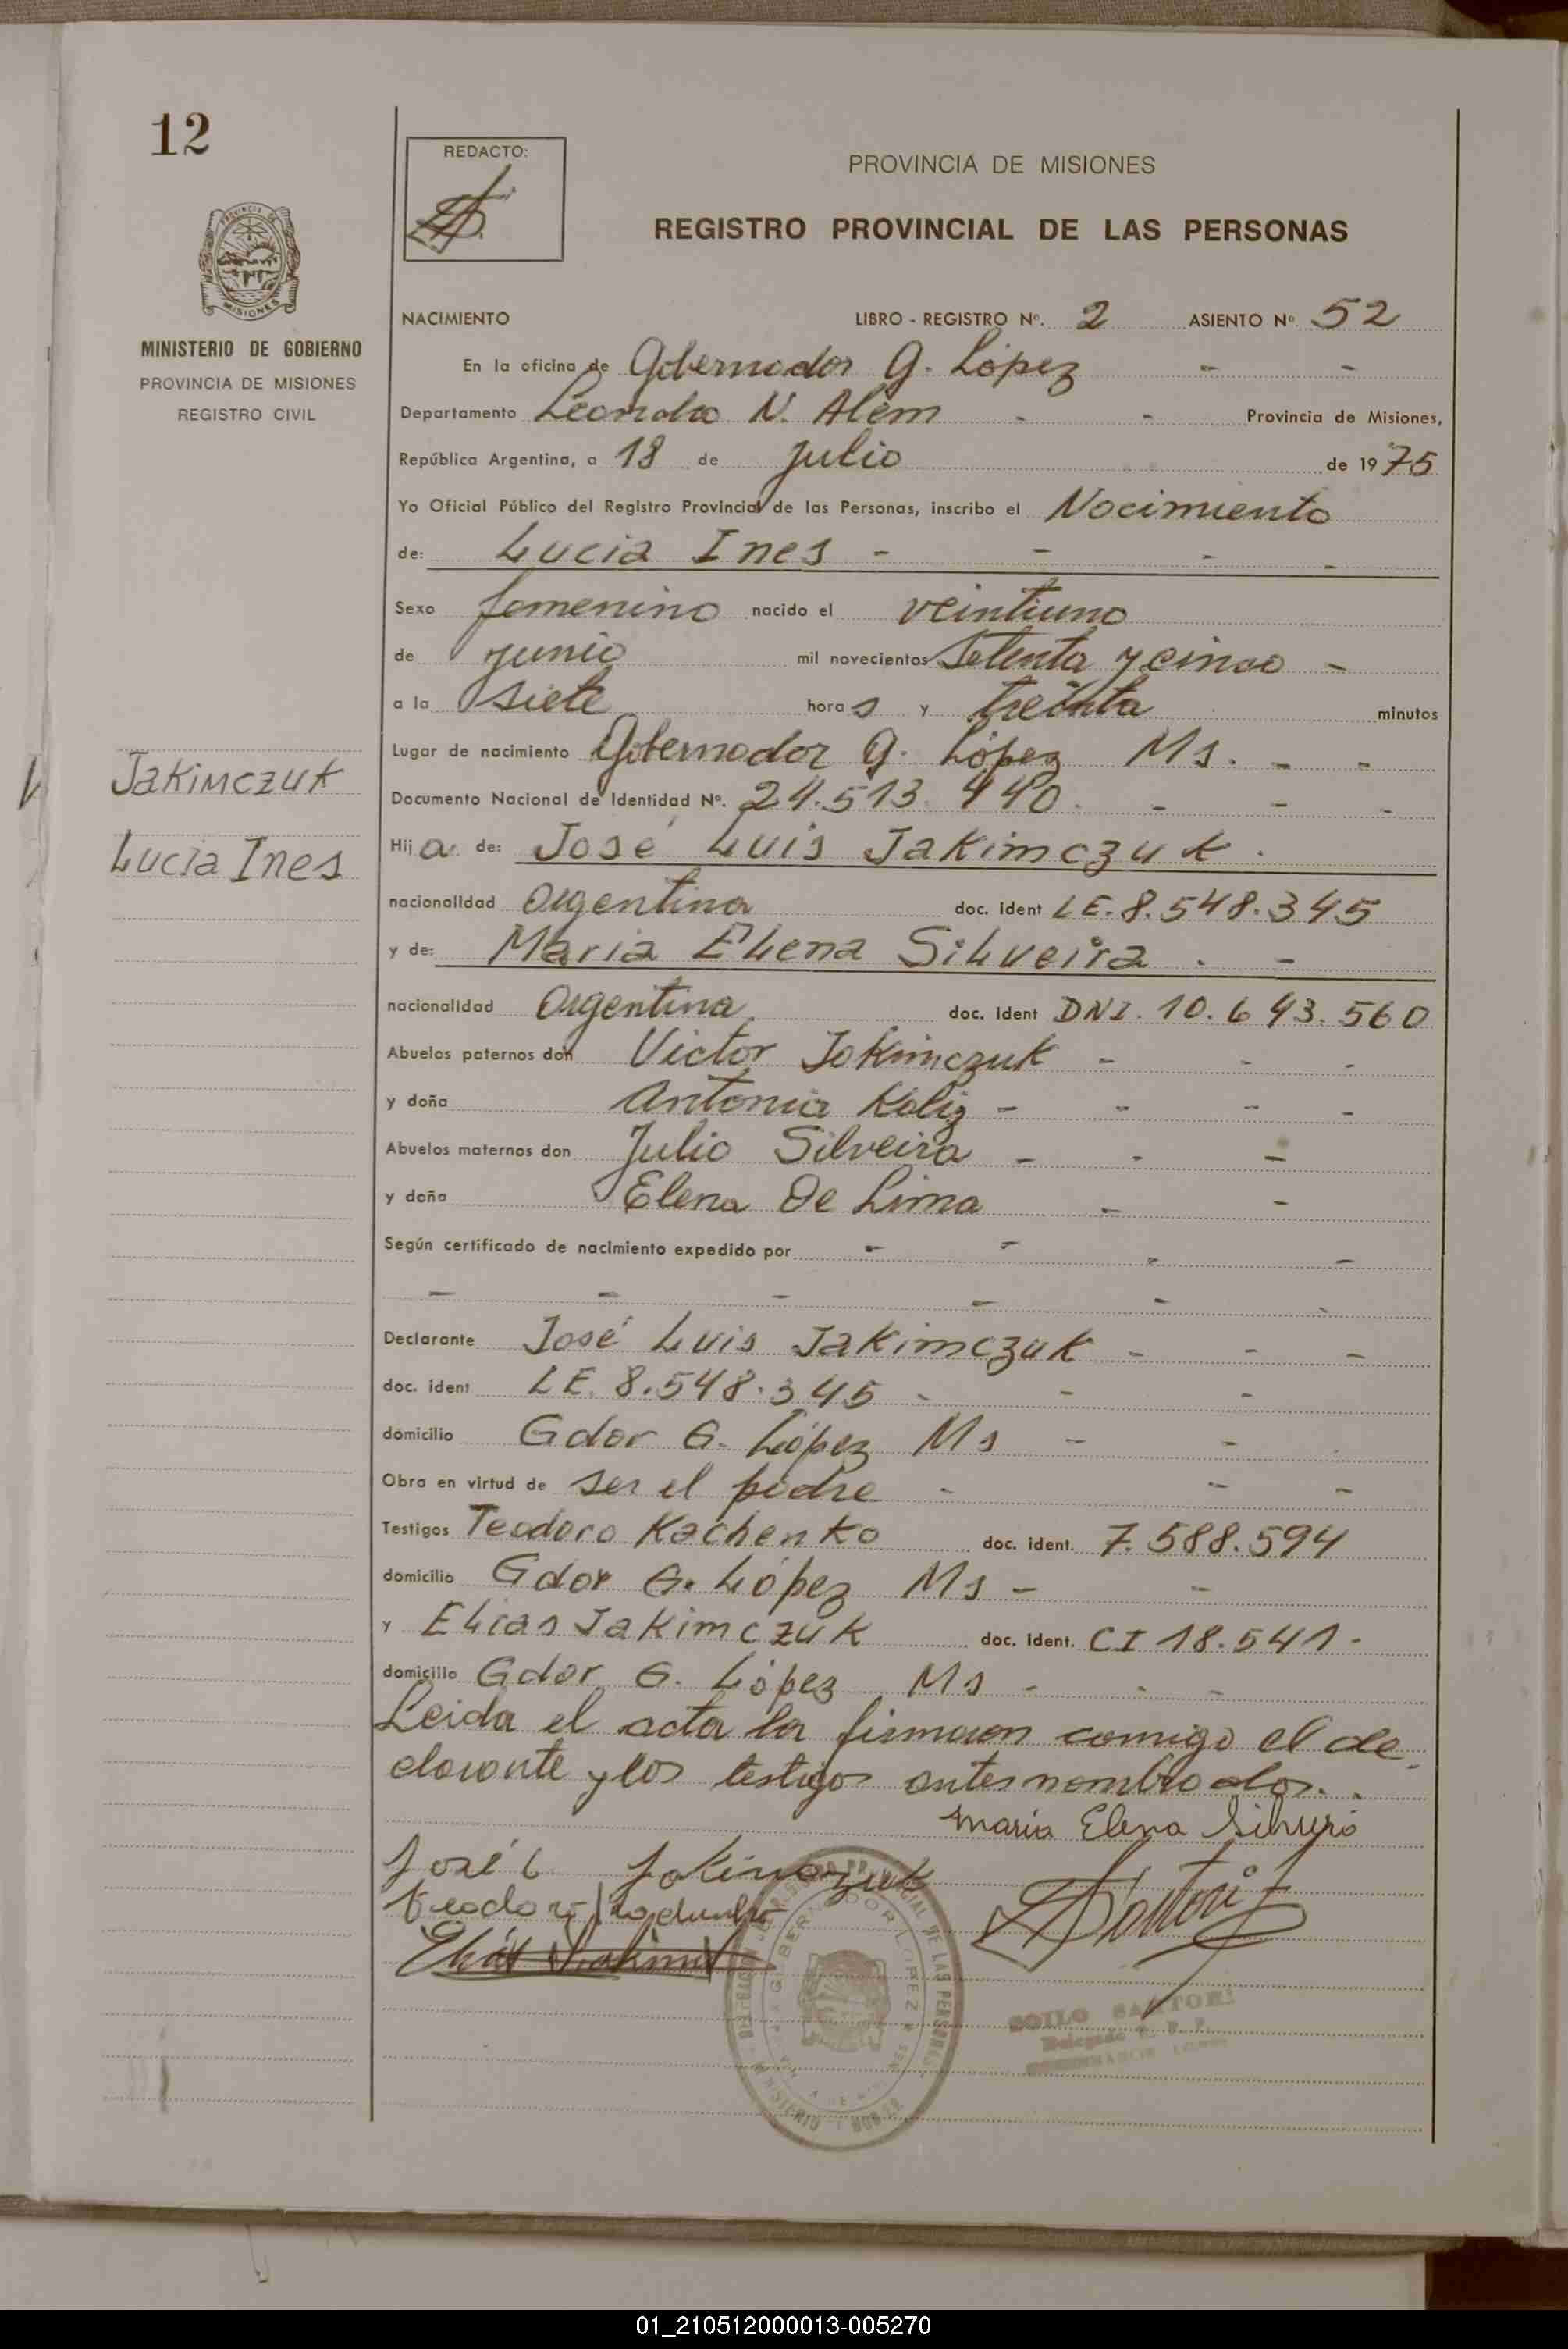 12
REDACTO:
PROVINCIA DE MISIONES
REGISTRO PROVINCIAL DE LAS PERSONAS
PROVINCIA DE
MISIONES
MINISTERIO DE GOBIERNO
PROVINCIA DE MISIONES
REGISTRO CIVIL
NACIMIENTO LIBRO - REGISTRO Nº. 2 ASIENTO Nº 52
En la oficina de Gobernador G. López - -
Departamento Leandro N. Alem - - Provincia de Misiones,
República Argentina, a 18 de Julio de 1975
Yo Oficial Público del Registro Provincial de las Personas, inscribo el Nacimiento
de: Lucia Ines - - - -
Sexo femenino nacido el veintiuno
de junio mil novecientos Setenta y cinco -
a la siete horas y treinta minutos
Lugar de nacimiento Gobernador G. López Ms. - -
Jakimczuk
Lucia Ines
Documento Nacional de Identidad Nº. 24.513.440. - - -
Hija de: José Luis Jakimczuk.
nacionalidad Argentina doc. ident LE. 8.548.345
y de: Maria Elena Silveira . -
nacionalidad Argentina doc. ident DNI. 10.643.560
Abuelos paternos don Victor Jakimczuk - - -
y doña Antonia Koliz - - - -
Abuelos maternos don Julio Silveira - - -
y doña Elena De Lima - -
Según certificado de nacimiento expedido por - - - -
- - - - - -
Declarante José Luis Jakimczuk - - -
doc. ident LE. 8.548.345 - - -
domicilio Gdor G. López Ms - -
Obra en virtud de ser el padre - - -
Testigos Teodoro Kachenko doc. ident. 7.588.594
domicilio Gdor G. López Ms - -
y Elias Jakimczuk doc. ident. CI 18.541 -
domicilio Gdor G. López Ms - - -
Leida el acta la firmaron comigo el de-
clarante y los testigos antes nombrados. .
Maria Elena
José L Jakimczuk
SOILO SANTORI
Delegado R. P. P.
GOBERNADOR LOPEZ
01_210512000013-005270